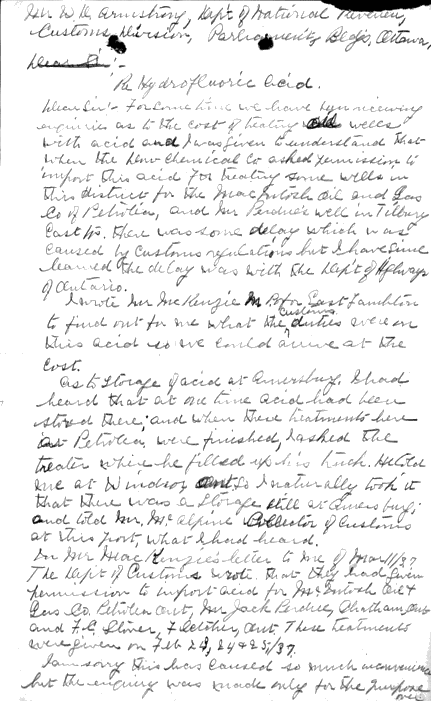 Mr W. D. Armstrong, Dep't of National Revenue,
Customs Division, Parliament Bldgs, Ottawa,
Dear Sir:-
Re Hydrofluoric acid.
Dear Sir:- For some time we have been receiving
enquiries as to the cost of treating old wells
with acid and I was given to understand that
when the Dow Chemical Co asked permission to
import this acid for treating some wells in
this district for the MacIntosh Oil and Gas
Co of Petrolea, and Mr Perdue's well in Tilbury
East Tp. there was some delay which was
caused by customs regulations but I have since
learned the delay was with the Dep't of Highways
of Ontario.
I wrote Mr McKenzie M.P. for East Lambton
to find out for me what the customs duties were on
this acid so we could arrive at the
cost.
As to Storage of acid at Amersburg. I had
heard that at one time acid had been
stored there; and when these treatments here
at Petrolea were finished, I asked the
treater where he filled up his truck. He told
me at Windsor so I naturally took it
that there was a storage still at Amersburg;
and told Mr. McAlpine Collector of Customs
at this port, what I had heard.
In Mr MacKenzie's letter to me of Mar 11/37
The Dep't of Customs wrote that they had given
permission to import acid for McIntosh Oil &
Gas Co. Petrolea Ont, Mr Jack Perdue, Chatham, Ont
and F.C. Ont. These treatments
were given on Feb 23, 24 & 25/37.
I am sorry this has caused so much inconvenience
but the enquiry was made only for the purpose